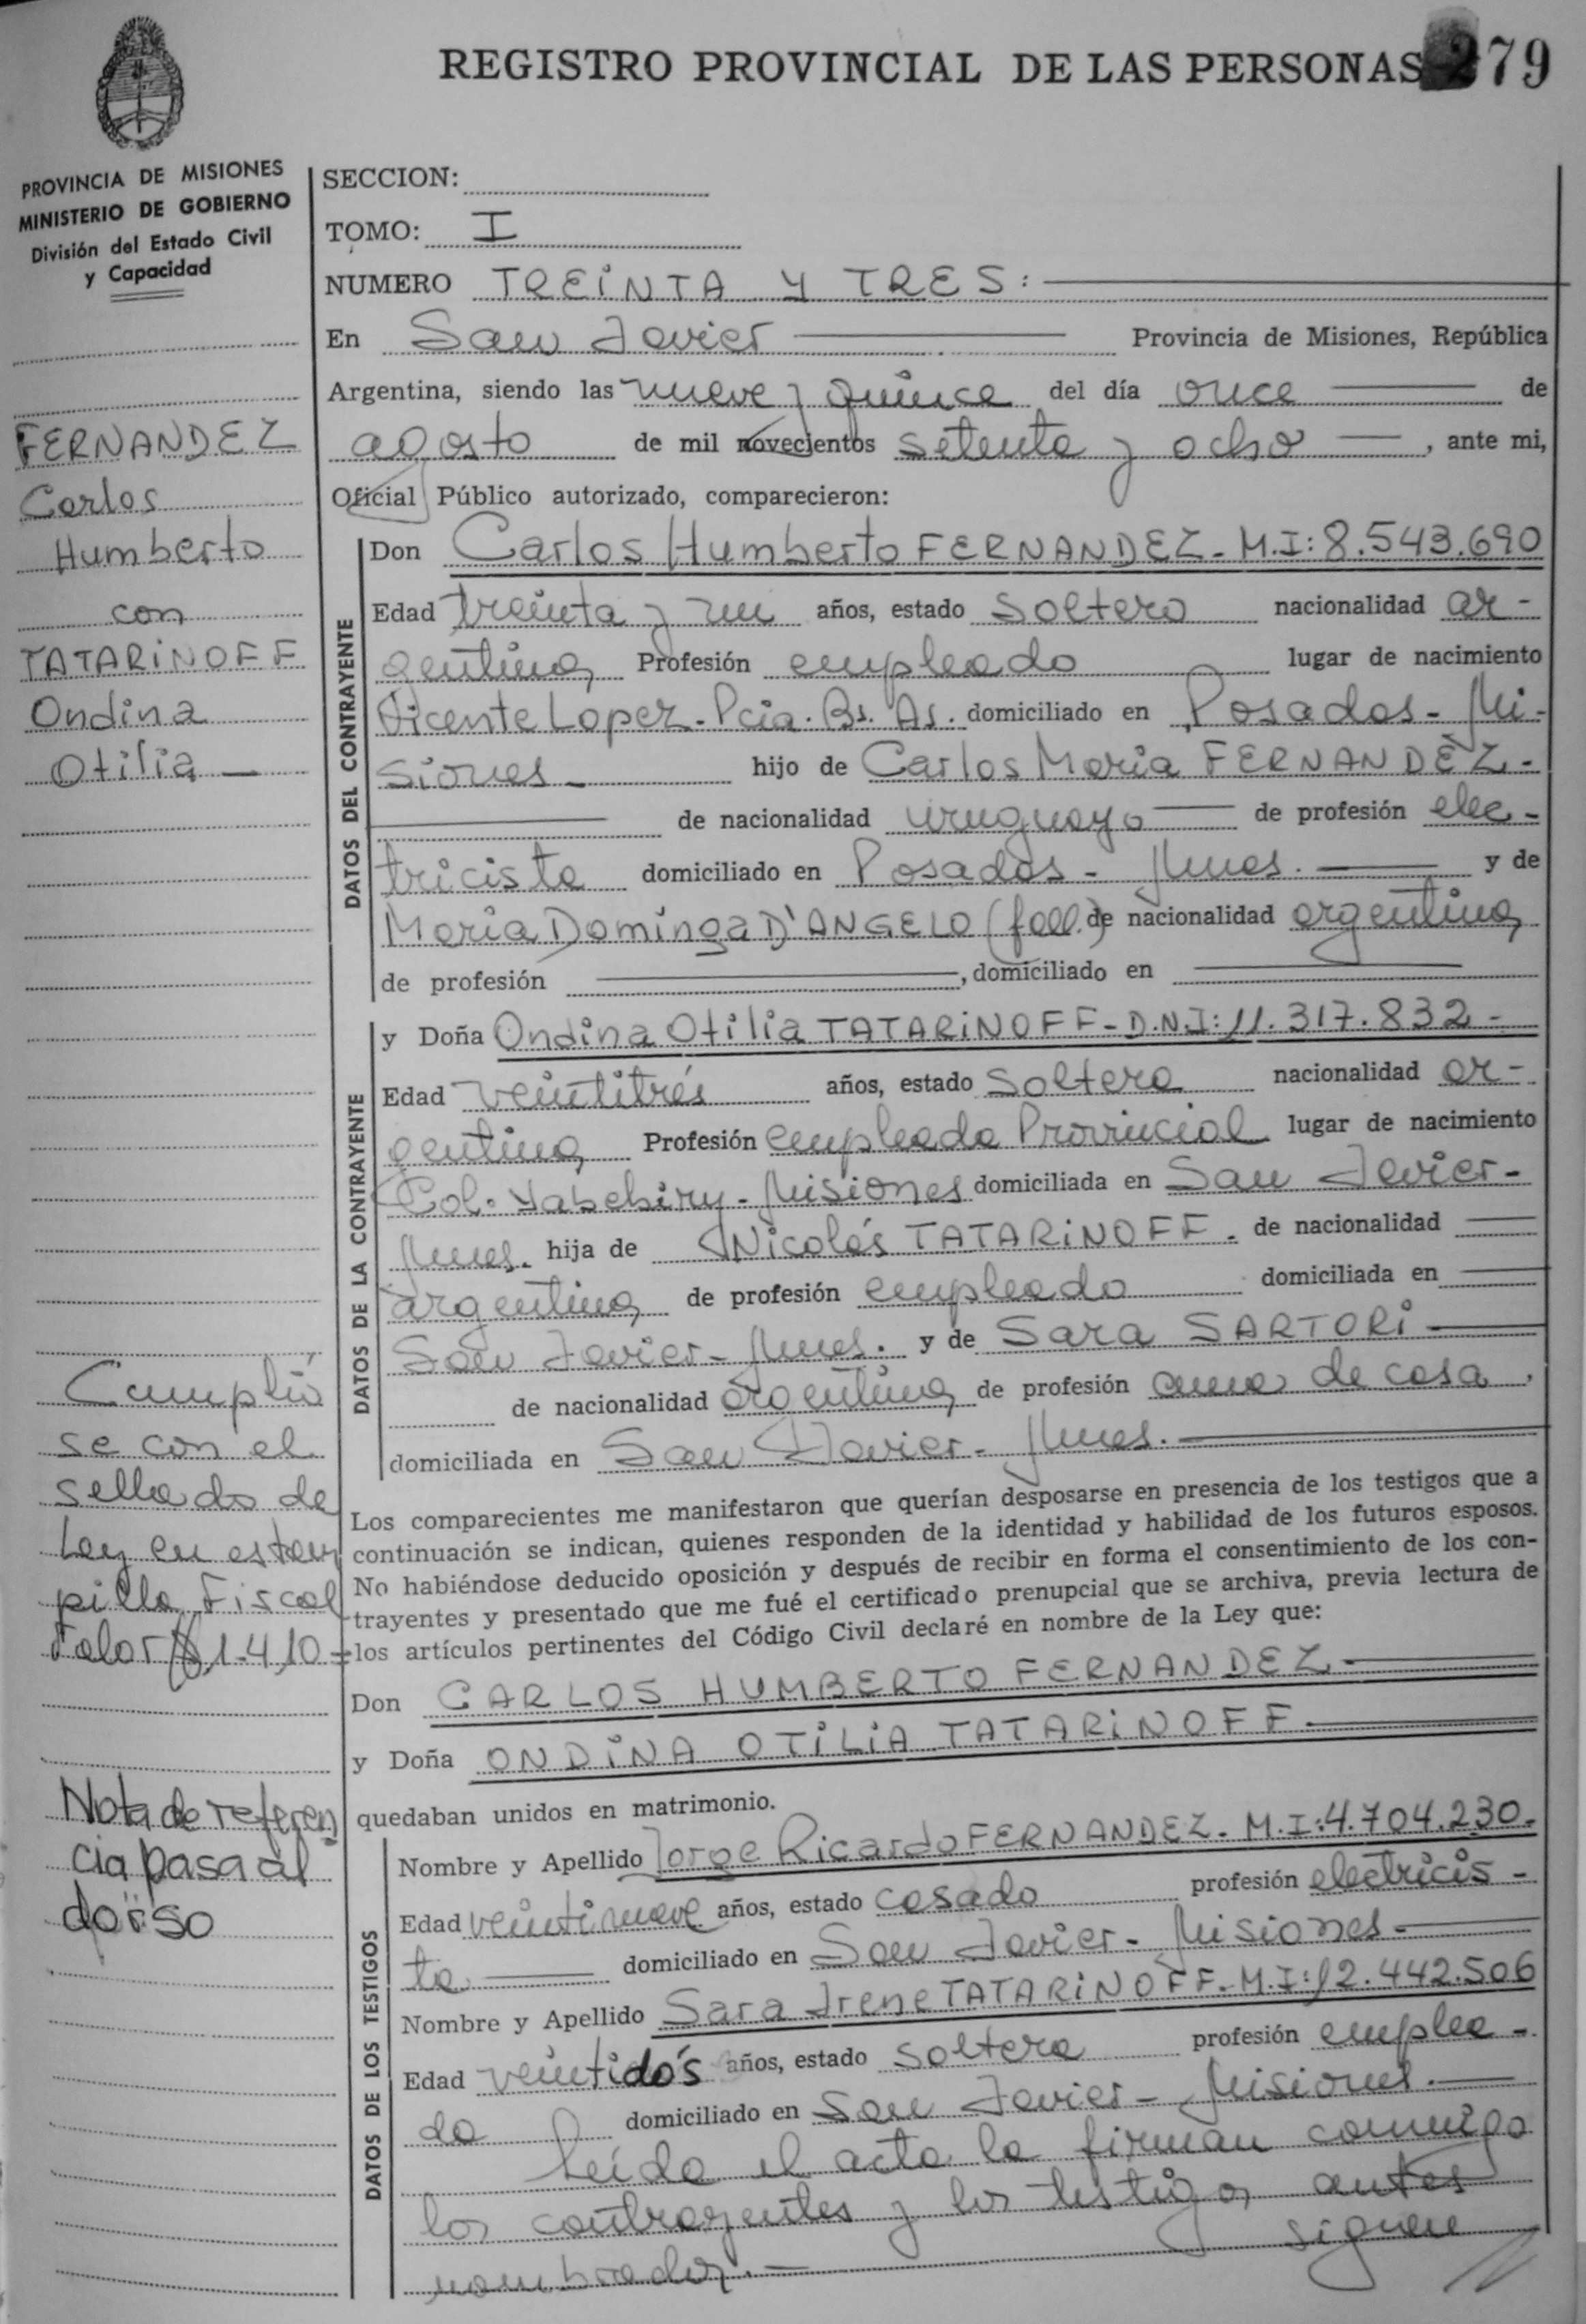 REGISTRO PROVINCIAL DE LAS PERSONAS 279
PROVINCIA DE MISIONES
MINISTERIO DE GOBIERNO
División del Estado Civil
y Capacidad
FERNANDEZ
Carlos
Humberto
con
TATARINOFF
Ondina
Otilia —
Cumplió
se con el
sellado de
Ley en estam
pilla Fiscal
Valor $ 1.410=
Nota de referen
cia pasa al
dorso
SECCION:
TOMO: I
NUMERO TREINTA Y TRES:
En San Javier Provincia de Misiones, República
Argentina, siendo las nueve y quince del día once de
agosto de mil novecientos setenta y ocho —, ante mi,
Oficial Público autorizado, comparecieron:
DATOS DEL CONTRAYENTE
Don Carlos Humberto FERNANDEZ - M.I: 8.543.690
Edad treinta y un años, estado soltero nacionalidad ar-
gentina Profesión empleado lugar de nacimiento
Vicente Lopez - Pcia. Bs. As. domiciliado en Posadas - Mi-
siones - hijo de Carlos Maria FERNANDEZ -
de nacionalidad uruguayo de profesión elec-
tricista domiciliado en Posadas - Mnes. y de
Maria Dominga D'ANGELO (fall.) de nacionalidad argentina
de profesión —, domiciliado en —
DATOS DE LA CONTRAYENTE
y Doña Ondina Otilia TATARINOFF - D.N.I: 11.317.832 -
Edad veintitrés años, estado soltera nacionalidad ar-
gentina Profesión empleada Provincial lugar de nacimiento
Col. Yabebiry - Misiones domiciliada en San Javier -
Mnes. hija de Nicolás TATARINOFF. de nacionalidad —
argentina de profesión empleado domiciliada en —
San Javier - Mnes. y de Sara SARTORI —
de nacionalidad argentina de profesión ama de casa,
domiciliada en San Javier - Mnes. —
Los comparecientes me manifestaron que querían desposarse en presencia de los testigos que a
continuación se indican, quienes responden de la identidad y habilidad de los futuros esposos.
No habiéndose deducido oposición y después de recibir en forma el consentimiento de los con-
trayentes y presentado que me fué el certificado prenupcial que se archiva, previa lectura de
los artículos pertinentes del Código Civil declaré en nombre de la Ley que:
Don CARLOS HUMBERTO FERNANDEZ —
y Doña ONDINA OTILIA TATARINOFF —
quedaban unidos en matrimonio.
DATOS DE LOS TESTIGOS
Nombre y Apellido Jorge Ricardo FERNANDEZ - M.I: 4.704.230.
Edad veintinueve años, estado casado profesión electricis-
ta — domiciliado en San Javier - Misiones - —
Nombre y Apellido Sara Irene TATARINOFF - M.I: 12.442.506
Edad veintidós años, estado soltera profesión emplea-
da domiciliado en San Javier - Misiones. —
Leída el acta la firman conmigo
los contrayentes y los testigos antes
nombrados. — siguen